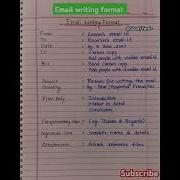 Email writing format
Email Writing Format
From :- Sender's email id
To :- Receiver's email id
Date :-
Cc :- Carbon copy
Add people with visible email id
Bcc :- Blind carbon copy
Add people with invisible email id
Subject :- Reason for writing the mail
Greeting :-
Main Body :- Introduction
Matter in detail
Conclusion
Complimentary close :- (eg. Thanks & Regards)
Signature line :- Sender's name & details
Attachment :- Attach reference files
Subscribe